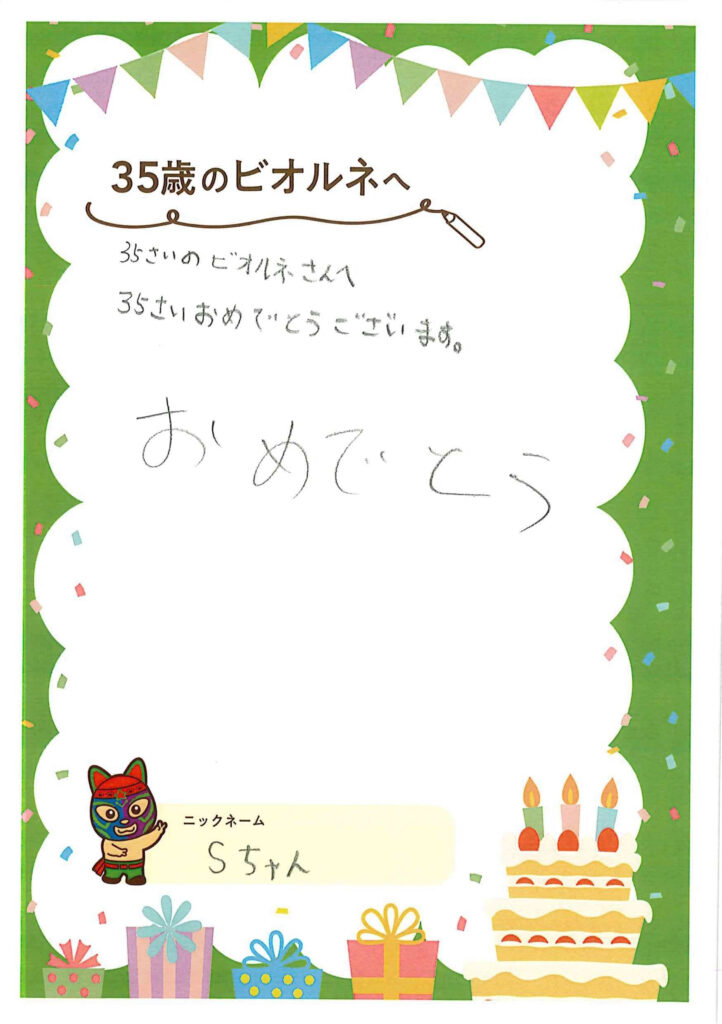 35歳のビオルネへ
35さいのビオルネさんへ
35さいおめでとうございます。
おめでとう
ニックネーム
Sちゃん